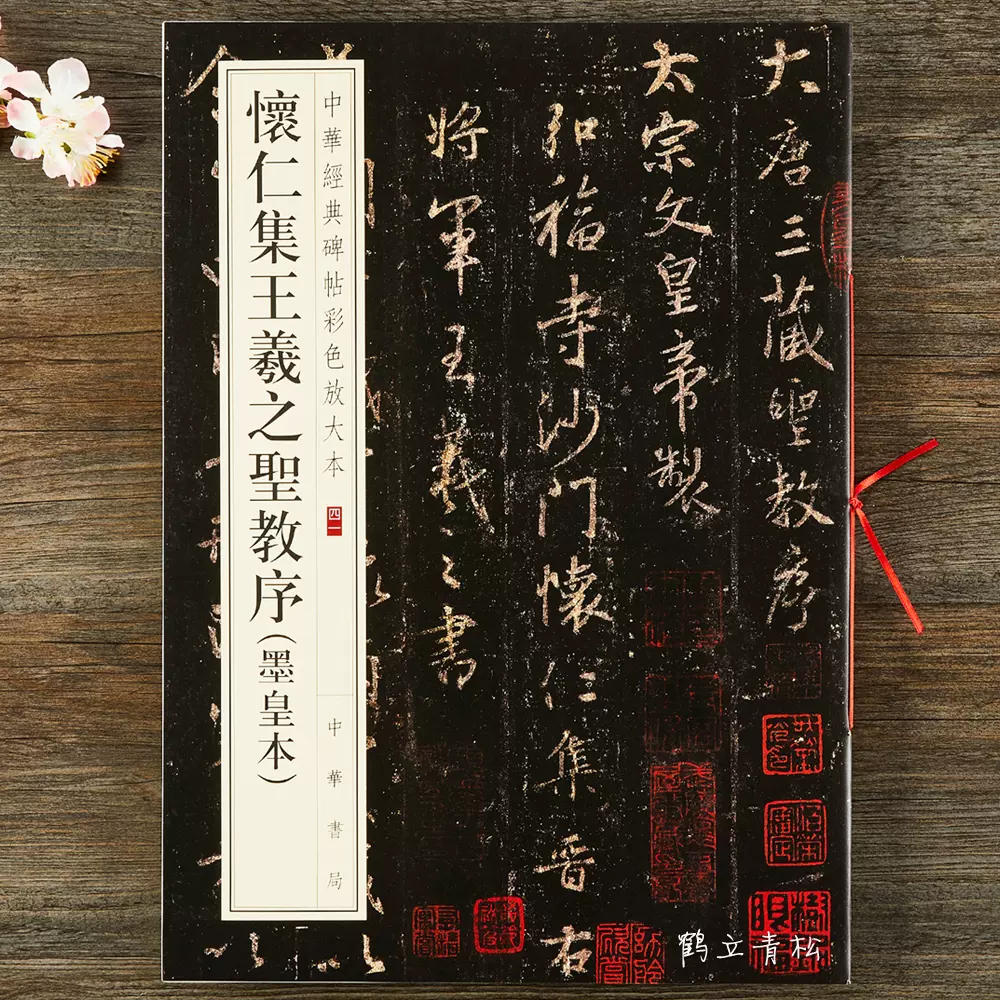 大唐三藏聖教序
太宗文皇帝製
弘福寺沙门懷仁集晋右
将軍王羲之書
中華經典碑帖彩色放大本 四一
中華書局
懷仁集王羲之聖教序(墨皇本)
鹤立青松